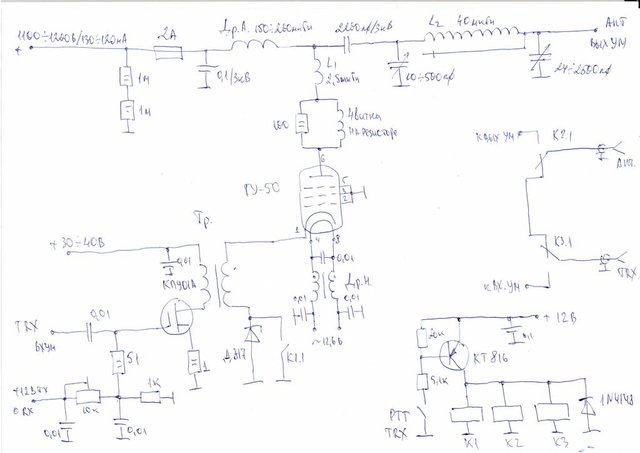 1100÷1200В/130÷120мА
+
2А
Др.А. 150÷200мкГн
2200пф/3кВ
L2 40мкГн
Ант
Вых УМ
0,1/3кВ
L1
2,5мкГн
20÷500пф
24÷2500пф
1м
1м
100
4 витка
на резисторе
6
ГУ-50
5
3
2
1
4
8
К вых УМ
К2.1
Ант.
К3.1
К вх.УМ
TRX
Тр.
+30÷40В
0,01
КП901А
0,01
0,01
Др.Н.
0,01
~12,6В
TRX
вх УМ
0,01
51
1
Д817
К1.1
+12В TX
0 RX
10к
1к
0,01
0,01
+12В
20к
0,1
КТ816
5,1к
1N4148
PTT
TRX
К1
К2
К3